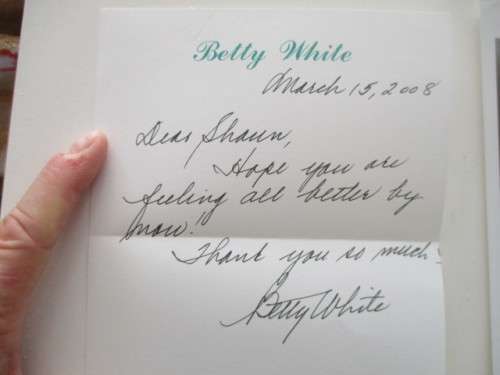 Betty White
March 15, 2008
Dear Shaun,
Hope you are
feeling all better by
now!
Thank you so much!
Betty White